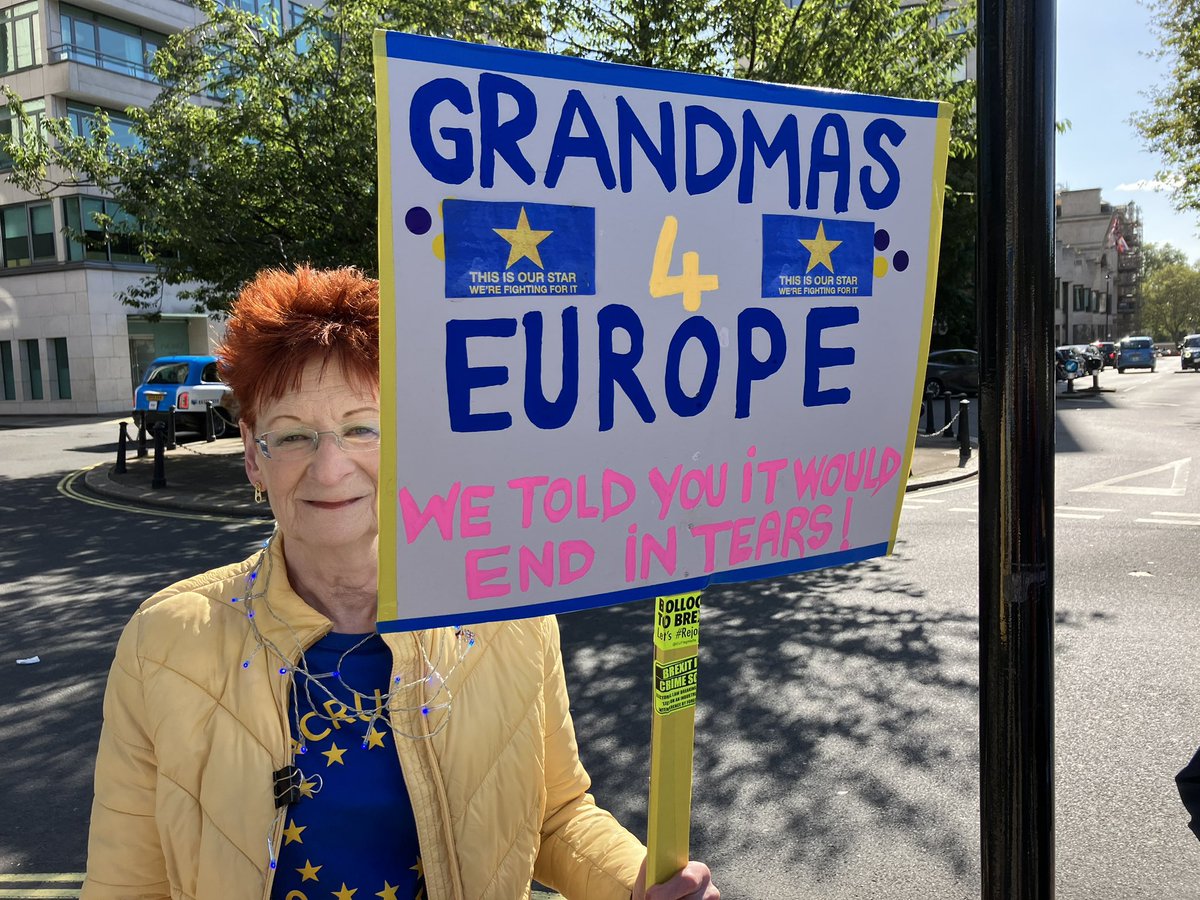 GRANDMAS
THIS IS OUR STAR
WE'RE FIGHTING FOR IT
4
THIS IS OUR STAR
WE'RE FIGHTING FOR IT
EUROPE
WE TOLD YOU iT WOULD
END iN TEARS!
TO BRE
BREXIT